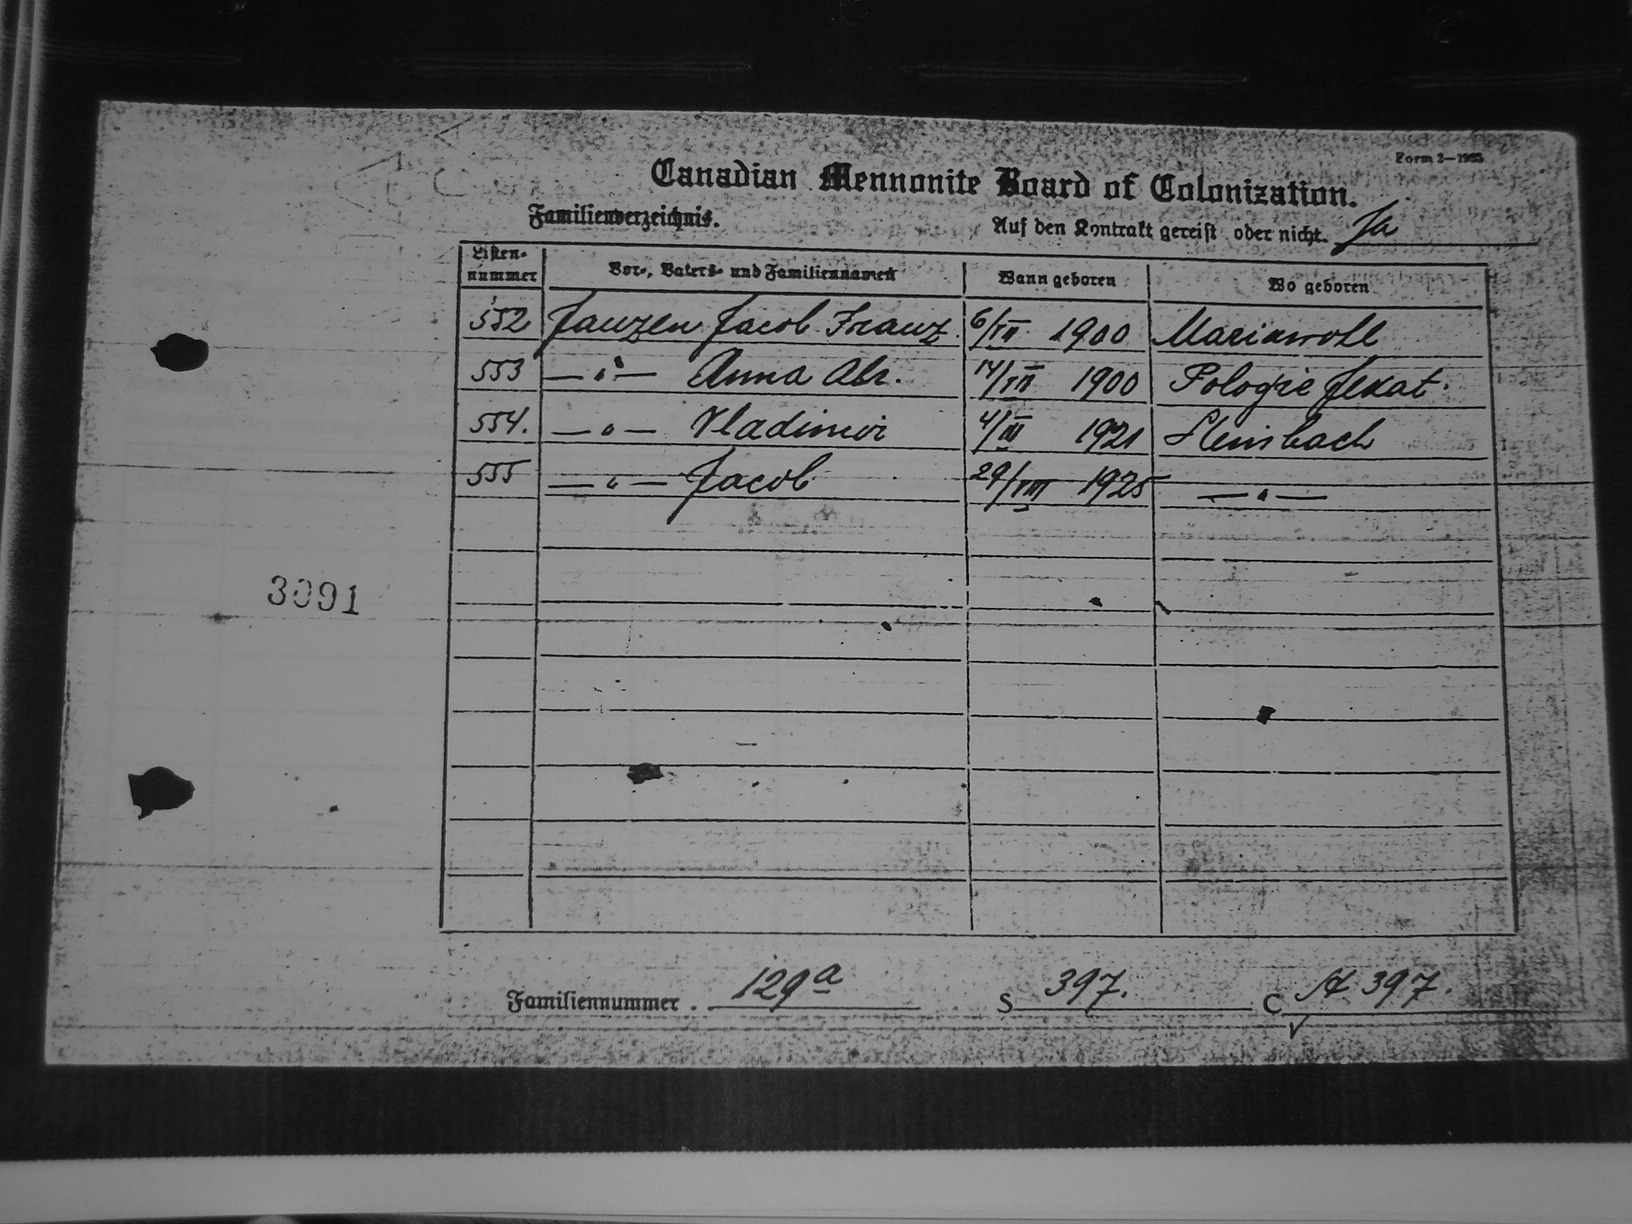 Form 2—1925
Canadian Mennonite Board of Colonization.
Familienverzeichnis.
Auf den Kontrakt gereist oder nicht. Ja
Listen-nummer Vor-, Vaters- und Familiennamen Wann geboren Wo geboren
552 Janzen Jacob Franz 6/ 1900 Mariawohl
553 —"— Anna Abr. 14/ 1900 Pologie Jekat.
554. —"— Vladimir 4/III 1921 Steinbach
555 —"— Jacob 29/VIII 1925 —"—
3091
Familiennummer. 129a S 397. C A 397.